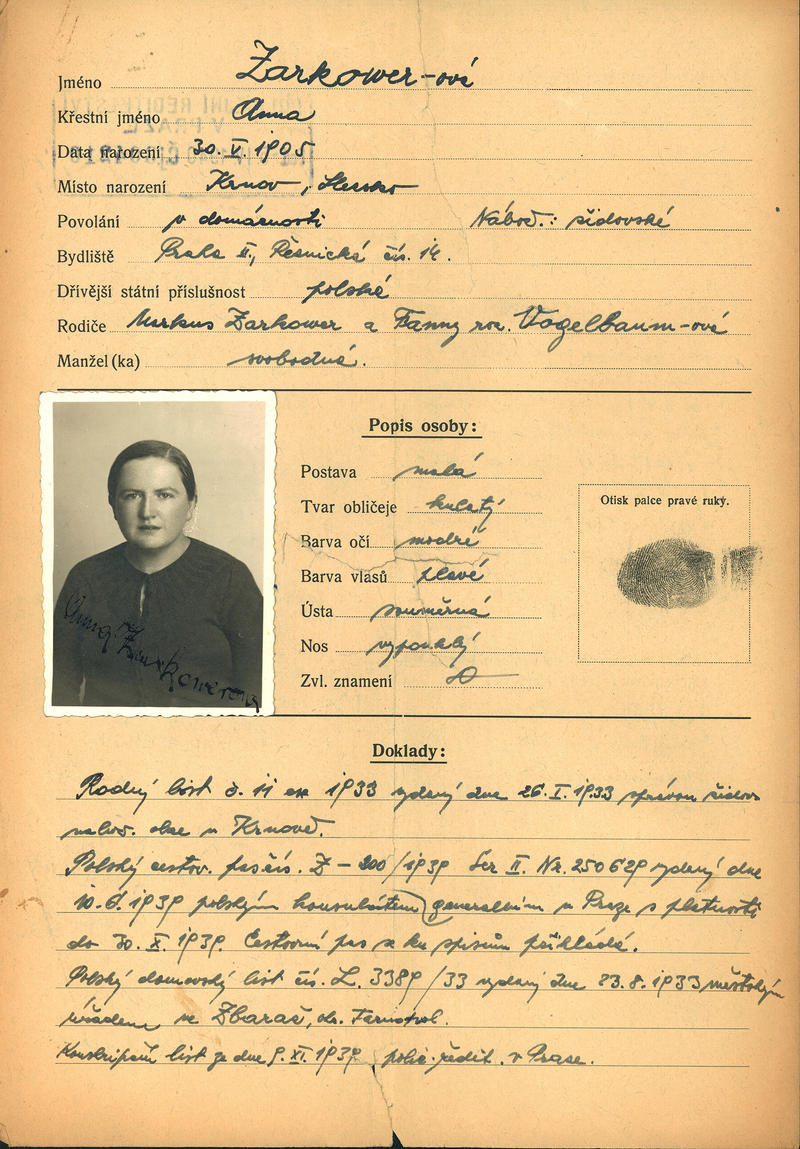 Jméno Zarkower-ová
Křestní jméno Anna
Data narození 30. V. 1905
Místo narození Krnov, Slezsko
Povolání v domácnosti Nábož.: židovské
Bydliště Praha II, Řeznická čís. 14.
Dřívější státní příslušnost polské
Rodiče Markus Zarkower a Fanny roz. Vogelbaum-ová
Manžel (ka) svobodná.
Popis osoby:
Postava malá
Tvar obličeje kulatý
Barva očí modré
Barva vlasů plavé
Ústa souměrná
Nos vypouklý
Zvl. znamení
Otisk palce pravé ruky.
Anna Zarkowerova
Doklady:
Rodný list č. 11 ex 1933 vydaný dne 26. I. 1933 správou židov.
nábož. obce v Krnově.
Polský cestov. pas čís. Z – 200/1939 Ser II. Nr. 250629 vydaný dne
10. 6. 1939 polským konsulátem generálním v Praze s platností
do 30. X. 1939. Cestovní pas se ku spisům přikládá.
Polský domovský list čís. L. 3389/33 vydaný dne 23. 8. 1933 městským
úřadem ve Zbaraž, ok. Tarnopol.
Konskripční list ze dne 9. XI. 1939 polic. ředit. v Praze.